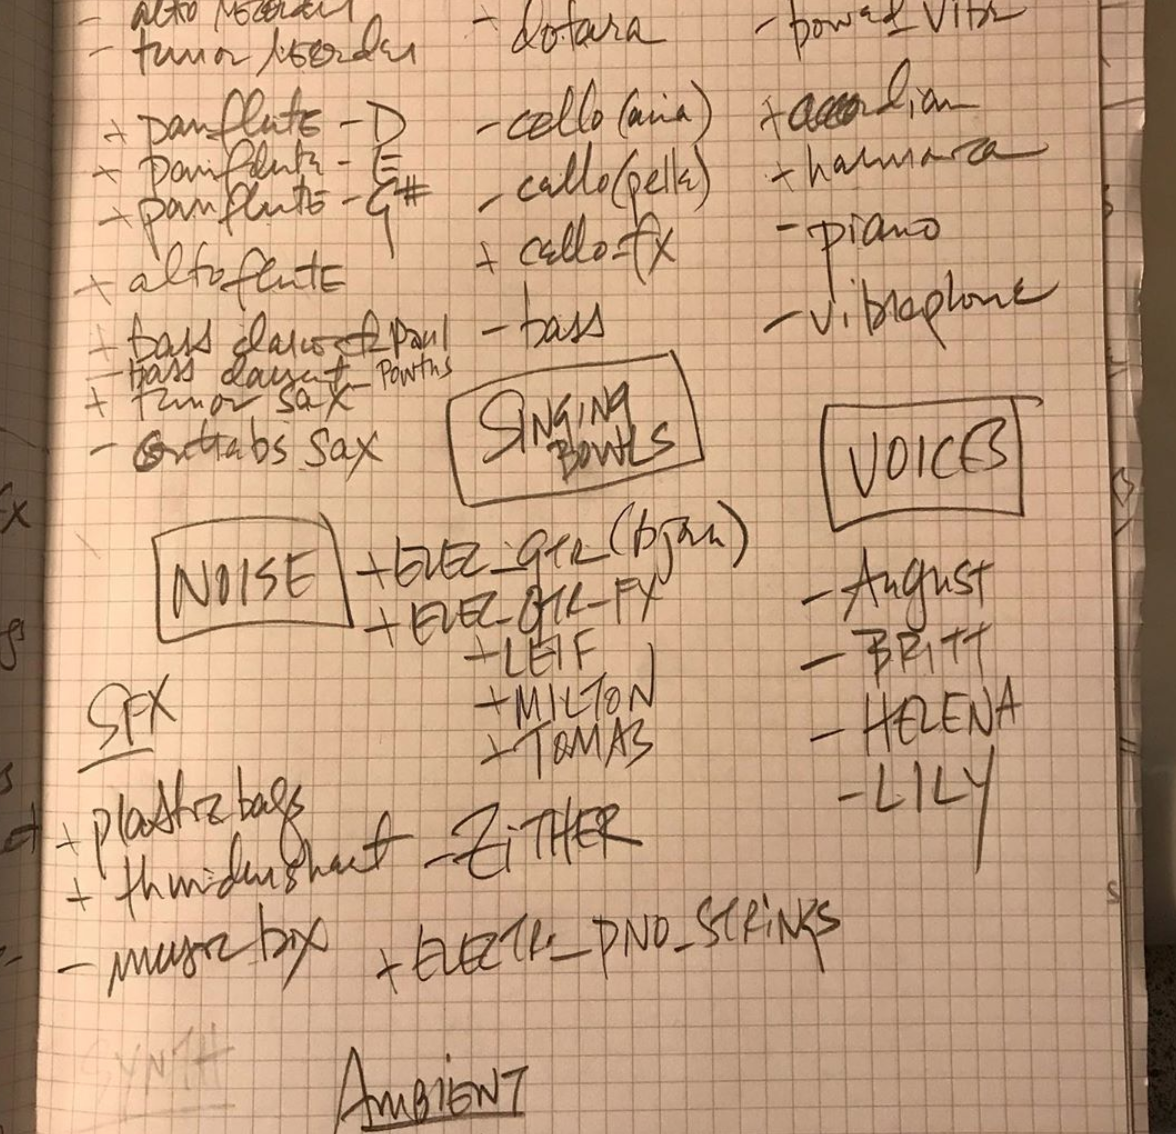 - alto recorder
- tenor recorder
+ panflute - D
+ panflute - E
+ panflute - G#
+ altoflute
+ bass clarinet Paul
- bass clarinet
+ tenor sax
- contrabs sax
- dotara
- cello (ania)
- cello (pelle)
+ cello-fx
- bass
- bowed vibr
+ accordian
+ harmonica
- piano
- vibraphone
SINGING
BOWLS
VOICES
- August
- BRITT
- HELENA
- LILY
NOISE
+ ELEC_GTR (bjorn)
+ ELEC_GTR_FX
+ LEIF
+ MILTON
+ TOMAS
SFX
+ plastic bags
+ thundersheet
- music box
- ZITHER
+ ELECTR_PNO_STRINGS
SYNTH
AMBIENT